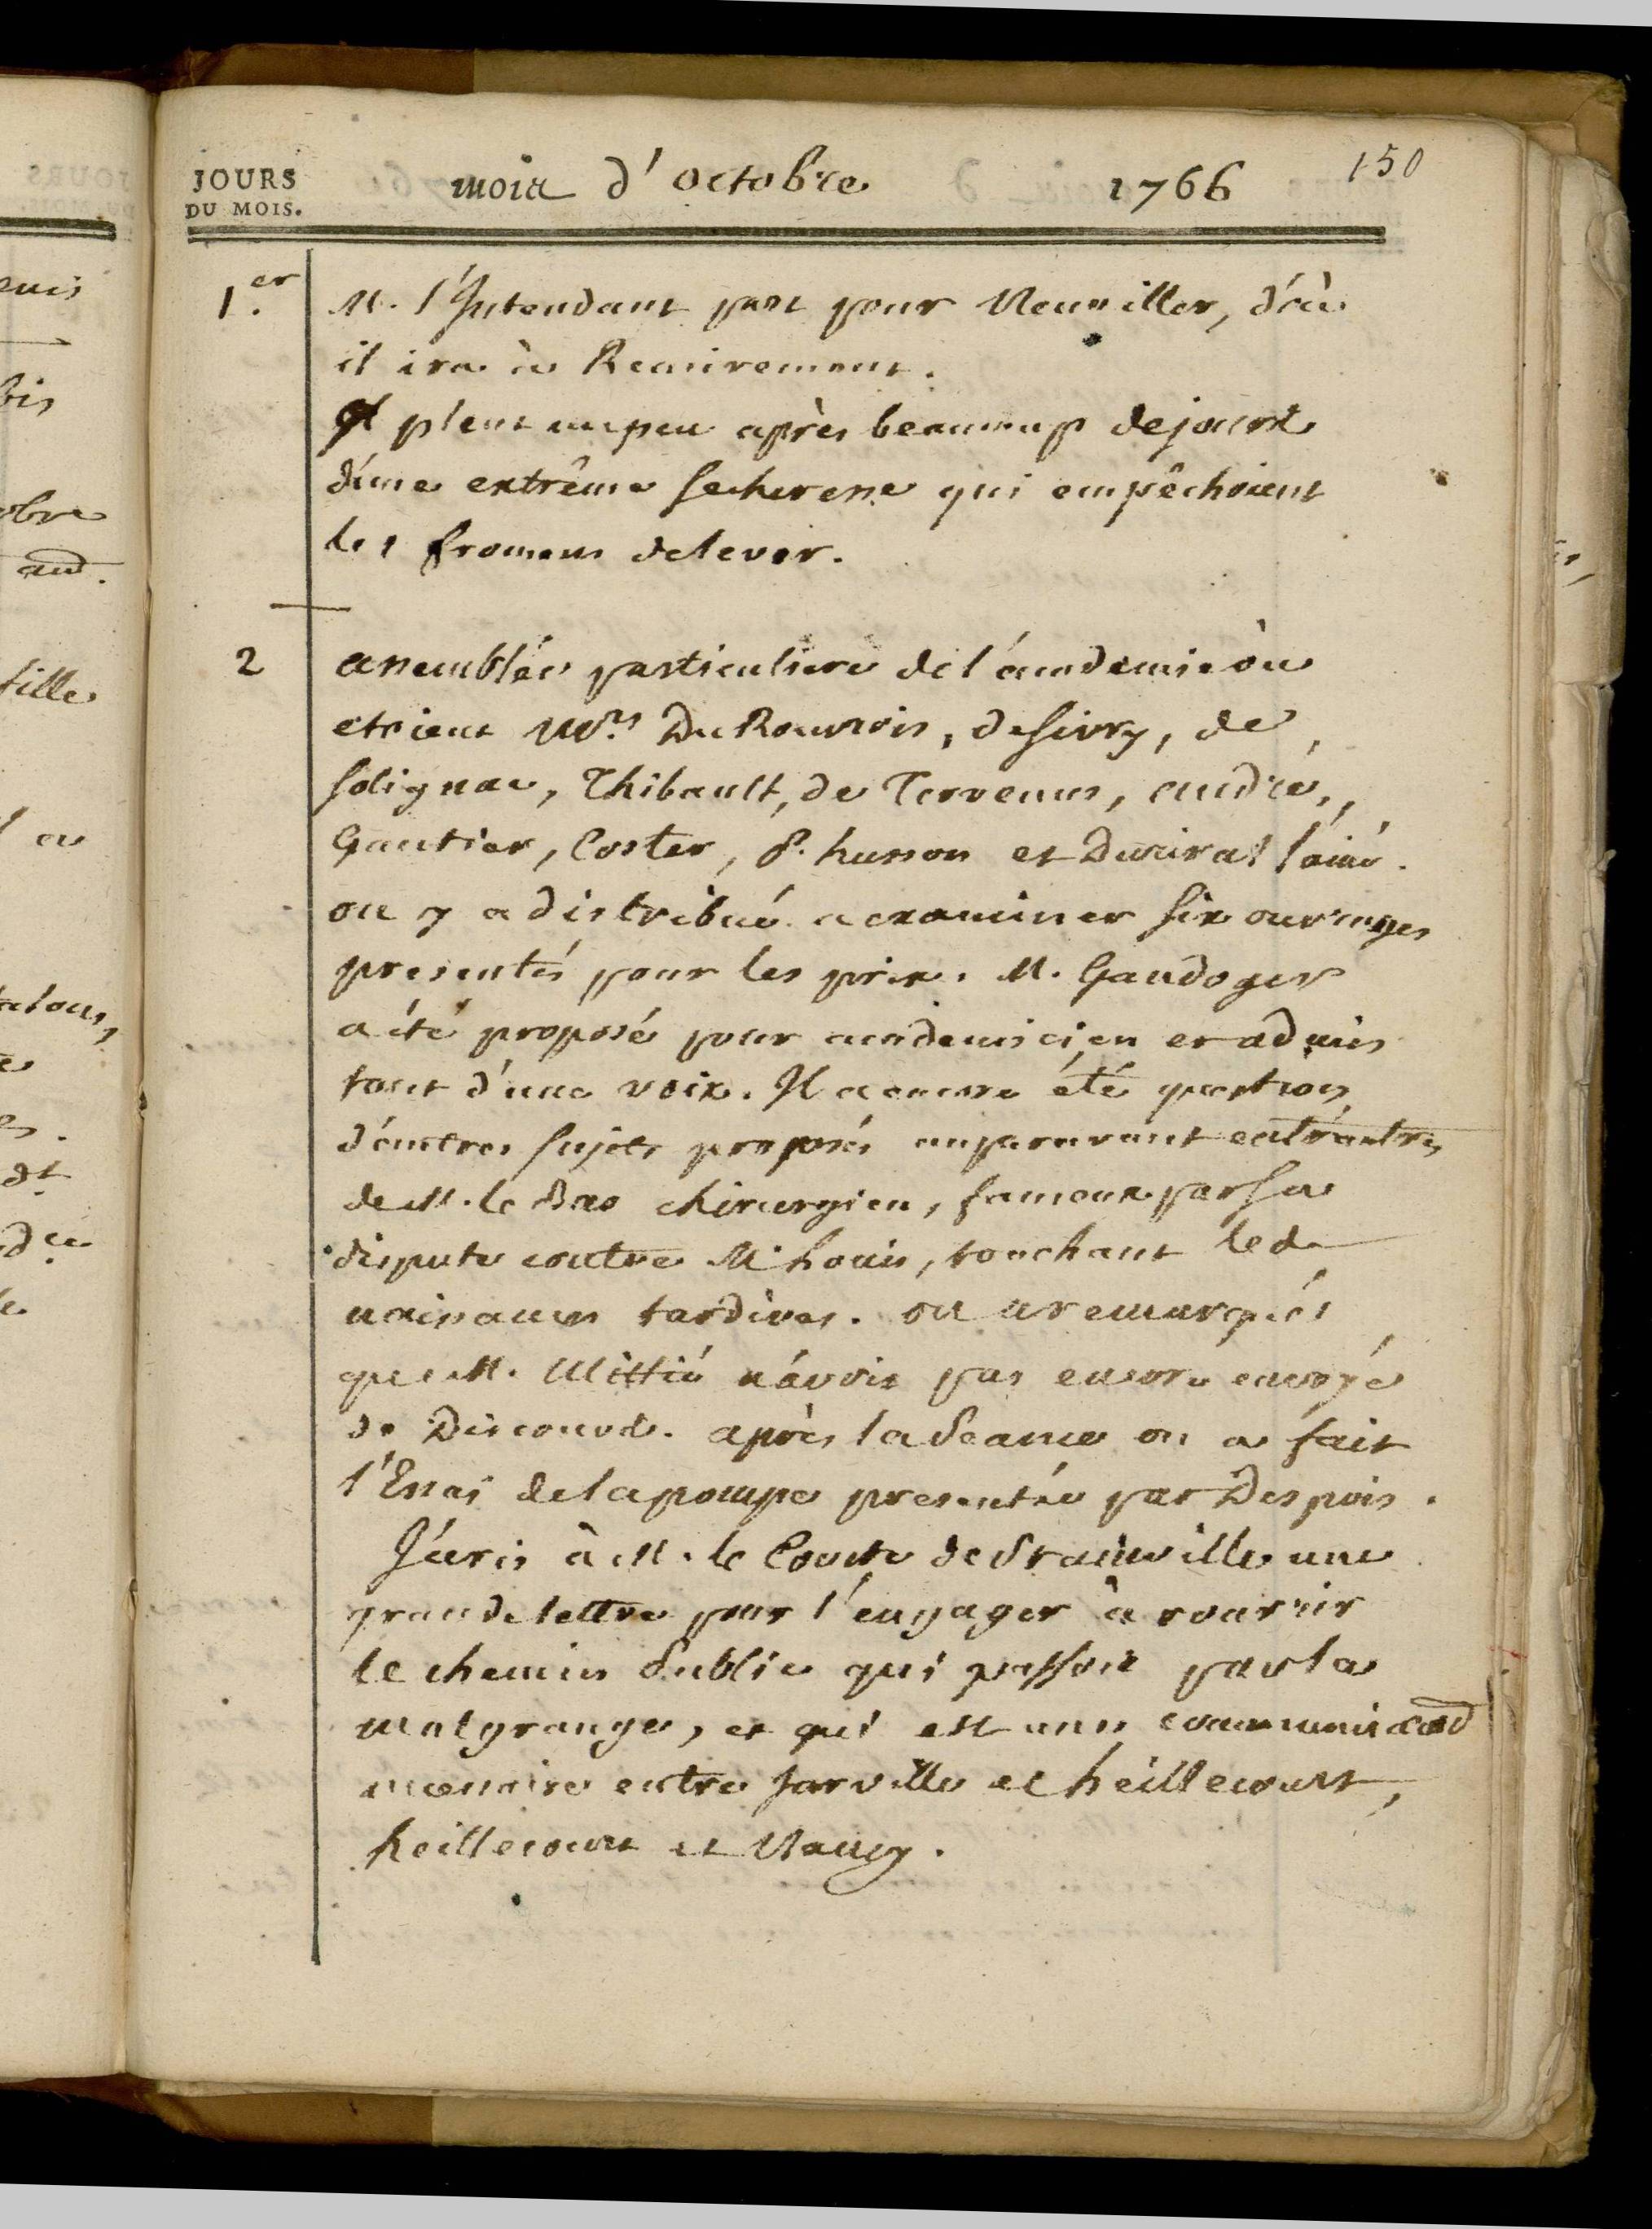 JOURS
DU MOIS.
mois d'octobre 1766 150
1.er M. l'Intendant part pour Neuviller, d'où
il ira à Remiremont.
Il pleut un peu après beaucoup de jours
d'une extrême secheresse qui empêchoient
les fromens de lever.
2 assemblée particuliere de l'academie où
etoient Mrs. Du Rouvrois, de Sivry, de
Solignac, Thibault, de Tervenus, andré,
Gautier, Coster, P. husson et Durival l'ainé.
on y a distribué a examiner six ouvrages
presentés pour les prix. M. Gandoger
a été proposé pour academicien et admis
tout d'une voix. Il a encore été question
d'autres sujets proposés auparavant entr'autres
de M. le Bas chirurgien, fameux par sa
dispute contre M. Louis, touchant les
naissances tardives. on a remarqué
que M. Mittié n'avoit pas encore envoyé
de Discours. après la Seance on a fait
l'Essai de la pompe presentée par Despois.
J'écris à M. le Comte de Stainville une
grande lettre pour l'engager à rouvrir
le chemin Public qui passoit par la
malgrange, et qui est une communicaõn
necessaire entre Jarville et heillecourt,
heillecourt et Nancy.